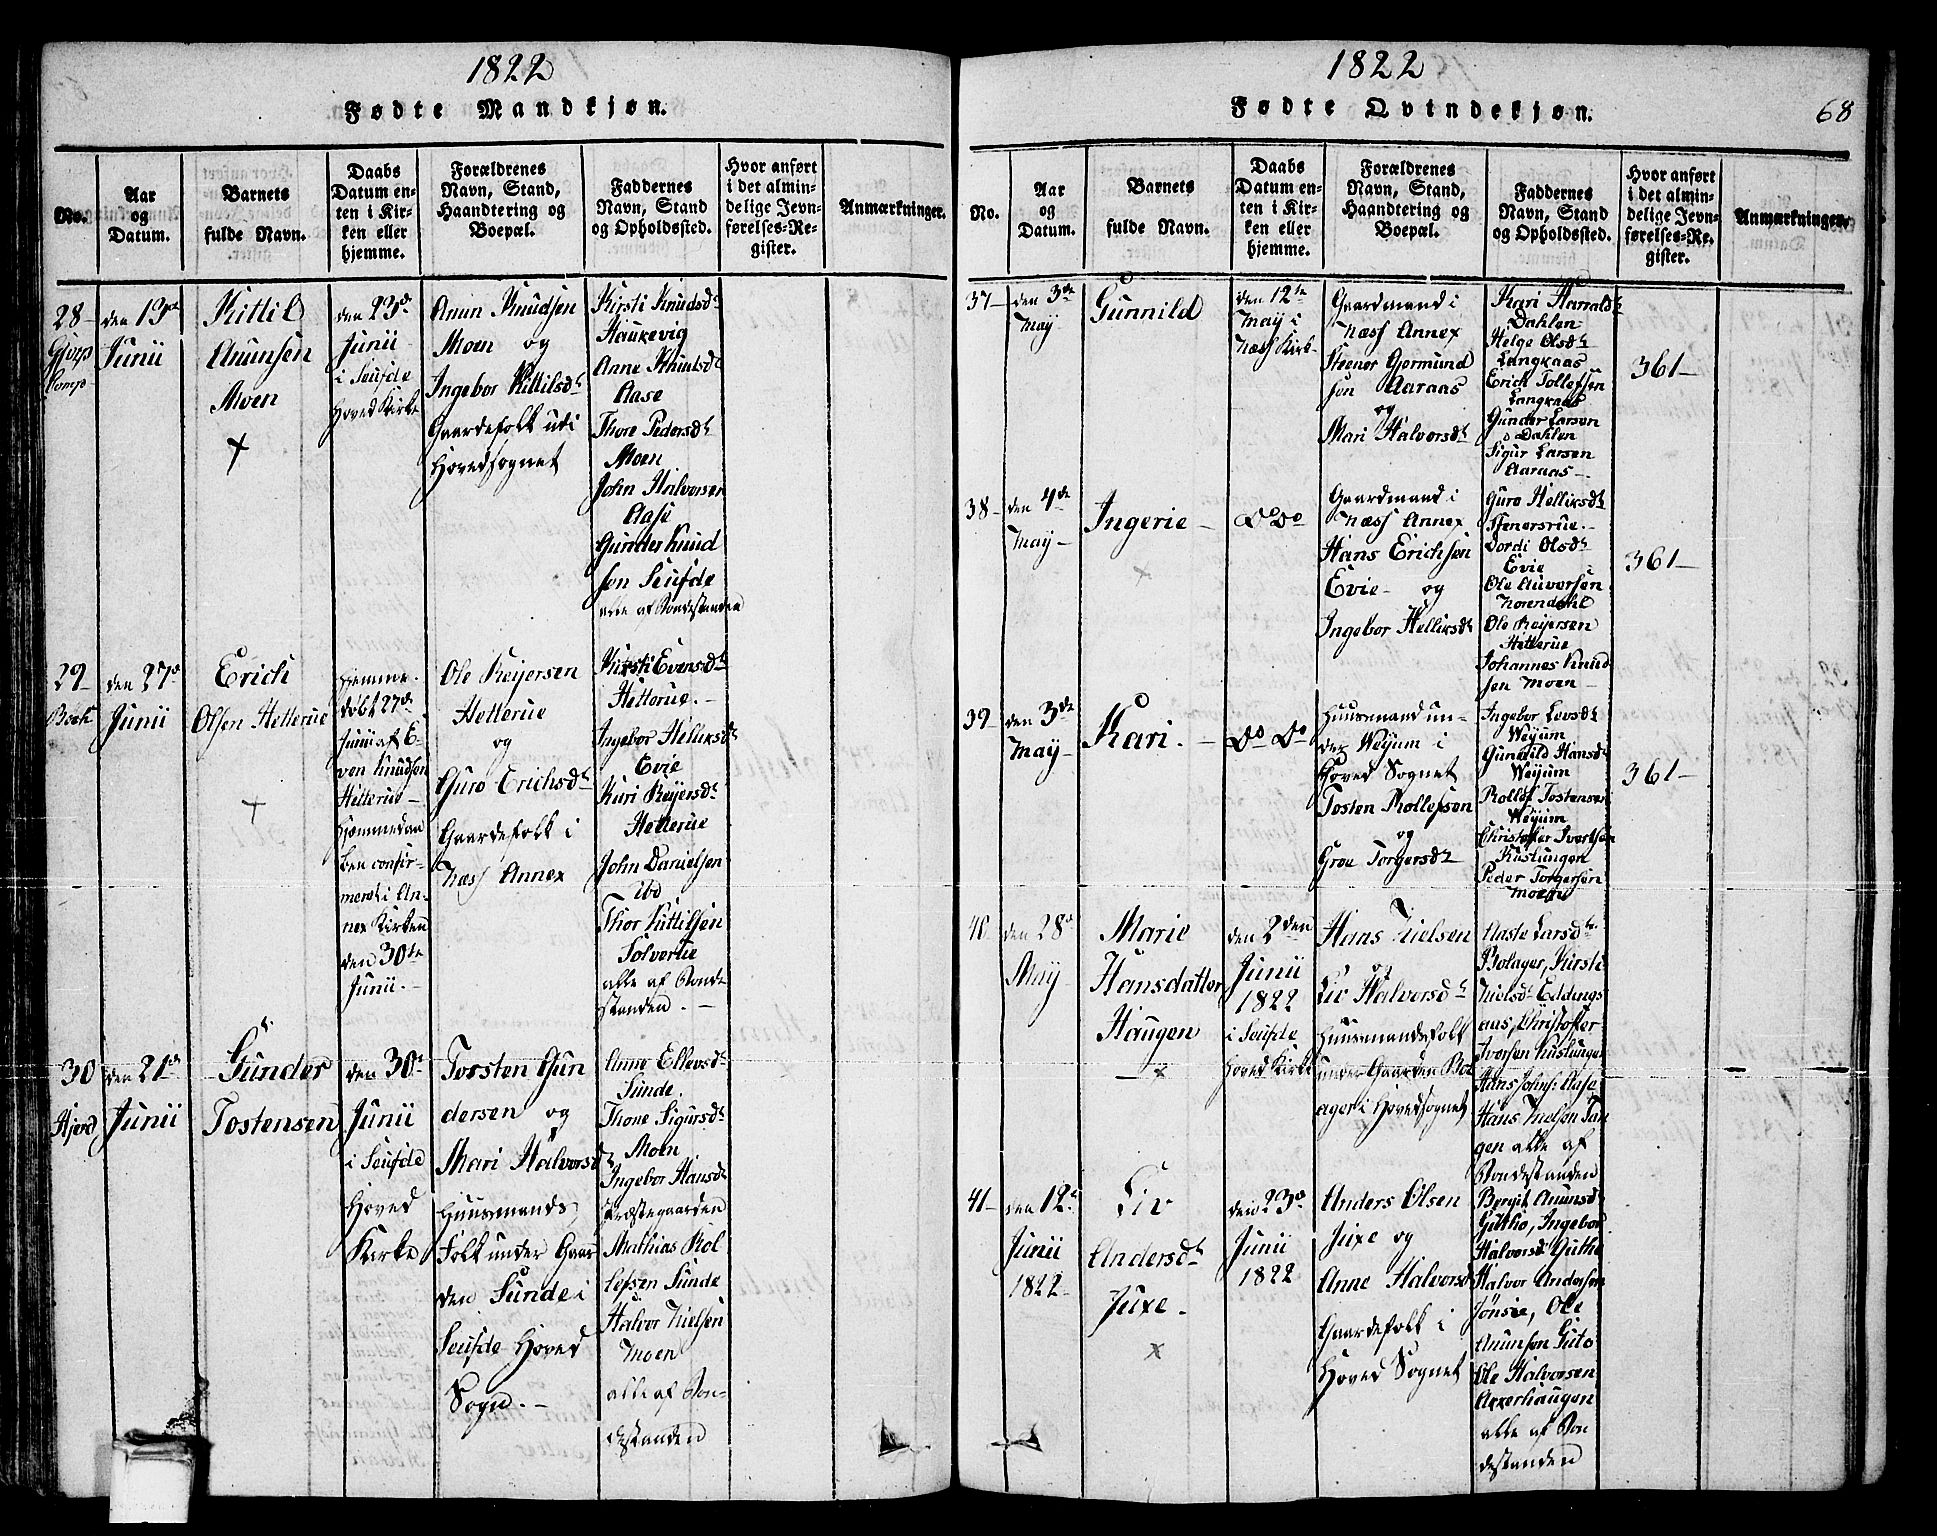 1822
Fødte Mandkjøn.
No.
Aar
og
Datum.
Barnets
fulde Navn.
Daabs
Datum en-
ten i Kir-
ken eller
hjemme.
Forældrenes
Navn, Stand,
Haandtering og
Boepæl.
Faddernes
Navn, Stand
og Opholdssted.
Hvor anført
i det almin-
delige Jevn-
førelses-Re-
gister.
Anmærkninger.
28
den 13de
Junii
Kittil
Anunsen
Moen
den 23de
Junii
i Seufde
Hoved Kirke
Anun Knudsen
Moen og
Ingebor Kittilsdt
Gaardefolk udi
Hovedsognet
Kirsti Knudsdt
Haukevig
Anne Knudsdt
Aase
Thore Pedersdt
Moen
John Halvorsen
Aase
Gunder Knud
sen Seufde
alle af Bondestanden
29
den 27de
Junii
Erich
Olsen Hetterue
Hjemme-
døbt 27de
Junii af E-
ven Knudsen
Hetterue
Hjemmedaa
ben confir-
meret i An-
nex Kirken
den 30te
Junii.
Ole Reijersen
Hetterue
og
Guro Erichsdt
Gaardefolk i
Næss Annex
Kirsti Evensdt
Hetterue.
Ingebor Helliksdt
Evie
Kari Reijersdt
Hetterue
John Danielsen
ibd
Thor Kittilsen
Solvertie
alle af Bonde
standen.
30
den 21de
Junii
Gunder
Tostensen
den 30te
Junii
i Seufde
Hoved
Kirke
Torsten Gun
dersen og
Mari Halvorsdt
Huusmands
Folk under Gaar
den Sunde i
Seufde Hoved
Sogn.
Anne Ellevsdt
Sunde.
Thone Sigursdt
Moen
Ingebor Hansdt
Præstegaarden
Mathias Rol
lefsen Sunde
Halvor Nielsen
Moen
alle af Bon-
destanden
1822
Fødte Qvindekjøn.
68
No.
Aar
og
Datum.
Barnets
fulde Navn.
Daabs
Datum en-
ten i Kir-
ken eller
hjemme.
Forældrenes
Navn, Stand,
Haandtering og
Boepæl.
Faddernes
Navn, Stand
og Opholdssted.
Hvor anført
i det almin-
delige Jevn-
førelses-Re-
gister.
Anmærkninger.
37
den 3de
May
Gunnild
den 12te
May i
Næss Kirk
Gaardmand i
Næss Annex
Steener Gjermund
sen Aaraas
og
Mari Halvorsdt
Kari Harraldsdt
Dahlen
Helge Olsdt
Langkaas
Erich Tollefsen
Langkaas
Gunder Larsen
Dahlen
Sigur Larsen
Aaraas
361
38
den 4de
May
Ingerie
Do Do
Gaardmand i
Næss Annex
Hans Erichsen
Evie og
Ingebor Helliksdt
Guro Helliksdt
Stenersrue.
Dordi Olsdt
Evie
Ole Auversen
Norendahl
Ole Reijersen
Hetterue
Johannes Knud
sen Moen
361
39
den 3de
May
Kari.
Do Do
Huusmand un-
der Weyum i
Hoved Sognet
Tosten Rollefsen
og
Groe Torgersdt
Ingebor Levsdt
Weyum
Gunnild Hansdt
Weyum
Rollof Tostensen
Weyum
Christoffer Ivertsen
Kuslungen
Peder Torgersen
Moene
361
40
den 28de
May
Marie
Hansdatter
Haugen
den 2den
Junii
1822
i Seufde
Hoved Kirke
Hans Nielsen
og
Liv Halvorsdt
Huusmandsfolk
under Gaarden Bol
ager i Hovedsognet
Aaste Larsdt
Bolager, Kirsti
Nielsdt Eldings
aas, Christoffer
Ivorsen Kuslungen
Hans Johns: Aase
Hans Nielsen Tan
gen alle af
Bondestanden
41
den 12te
Junii
1822
Liv
Andersdt
Juxe
den 23de
Junii
1822
Anders Olsen
Juxe og
Anne Halvorsdt
Gaardefolk i
Hoved Sognet
Bergit Anunsdt
Gutho, Ingebor
Halvorsdt Gutho
Halvor Andersen
Jønsie, Ole
Anunsen Guto
Ole Halvorsen
Akkerhaugen
alle af Bon
destanden